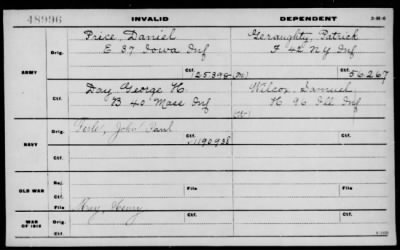 48996
INVALID
DEPENDENT
3-98-6
ARMY
Orig.
Price, Daniel
E 37 Iowa Inf
Geraughty, Patrick
F 42 NY Inf
Ctf.
125398
Ctf.
56267
Ctf.
Day George H
B 40 Mass Inf
Wilcox, Samuel
K 96 Ill Inf
NAVY
Orig.
John Paul
Ctf.
1190938
Orig.
Ctf.
Ctf.
OLD WAR
Rej.
Ctf.
File
File
WAR OF 1812
Orig.
May, Henry
Ctf.
Ctf.
File
File